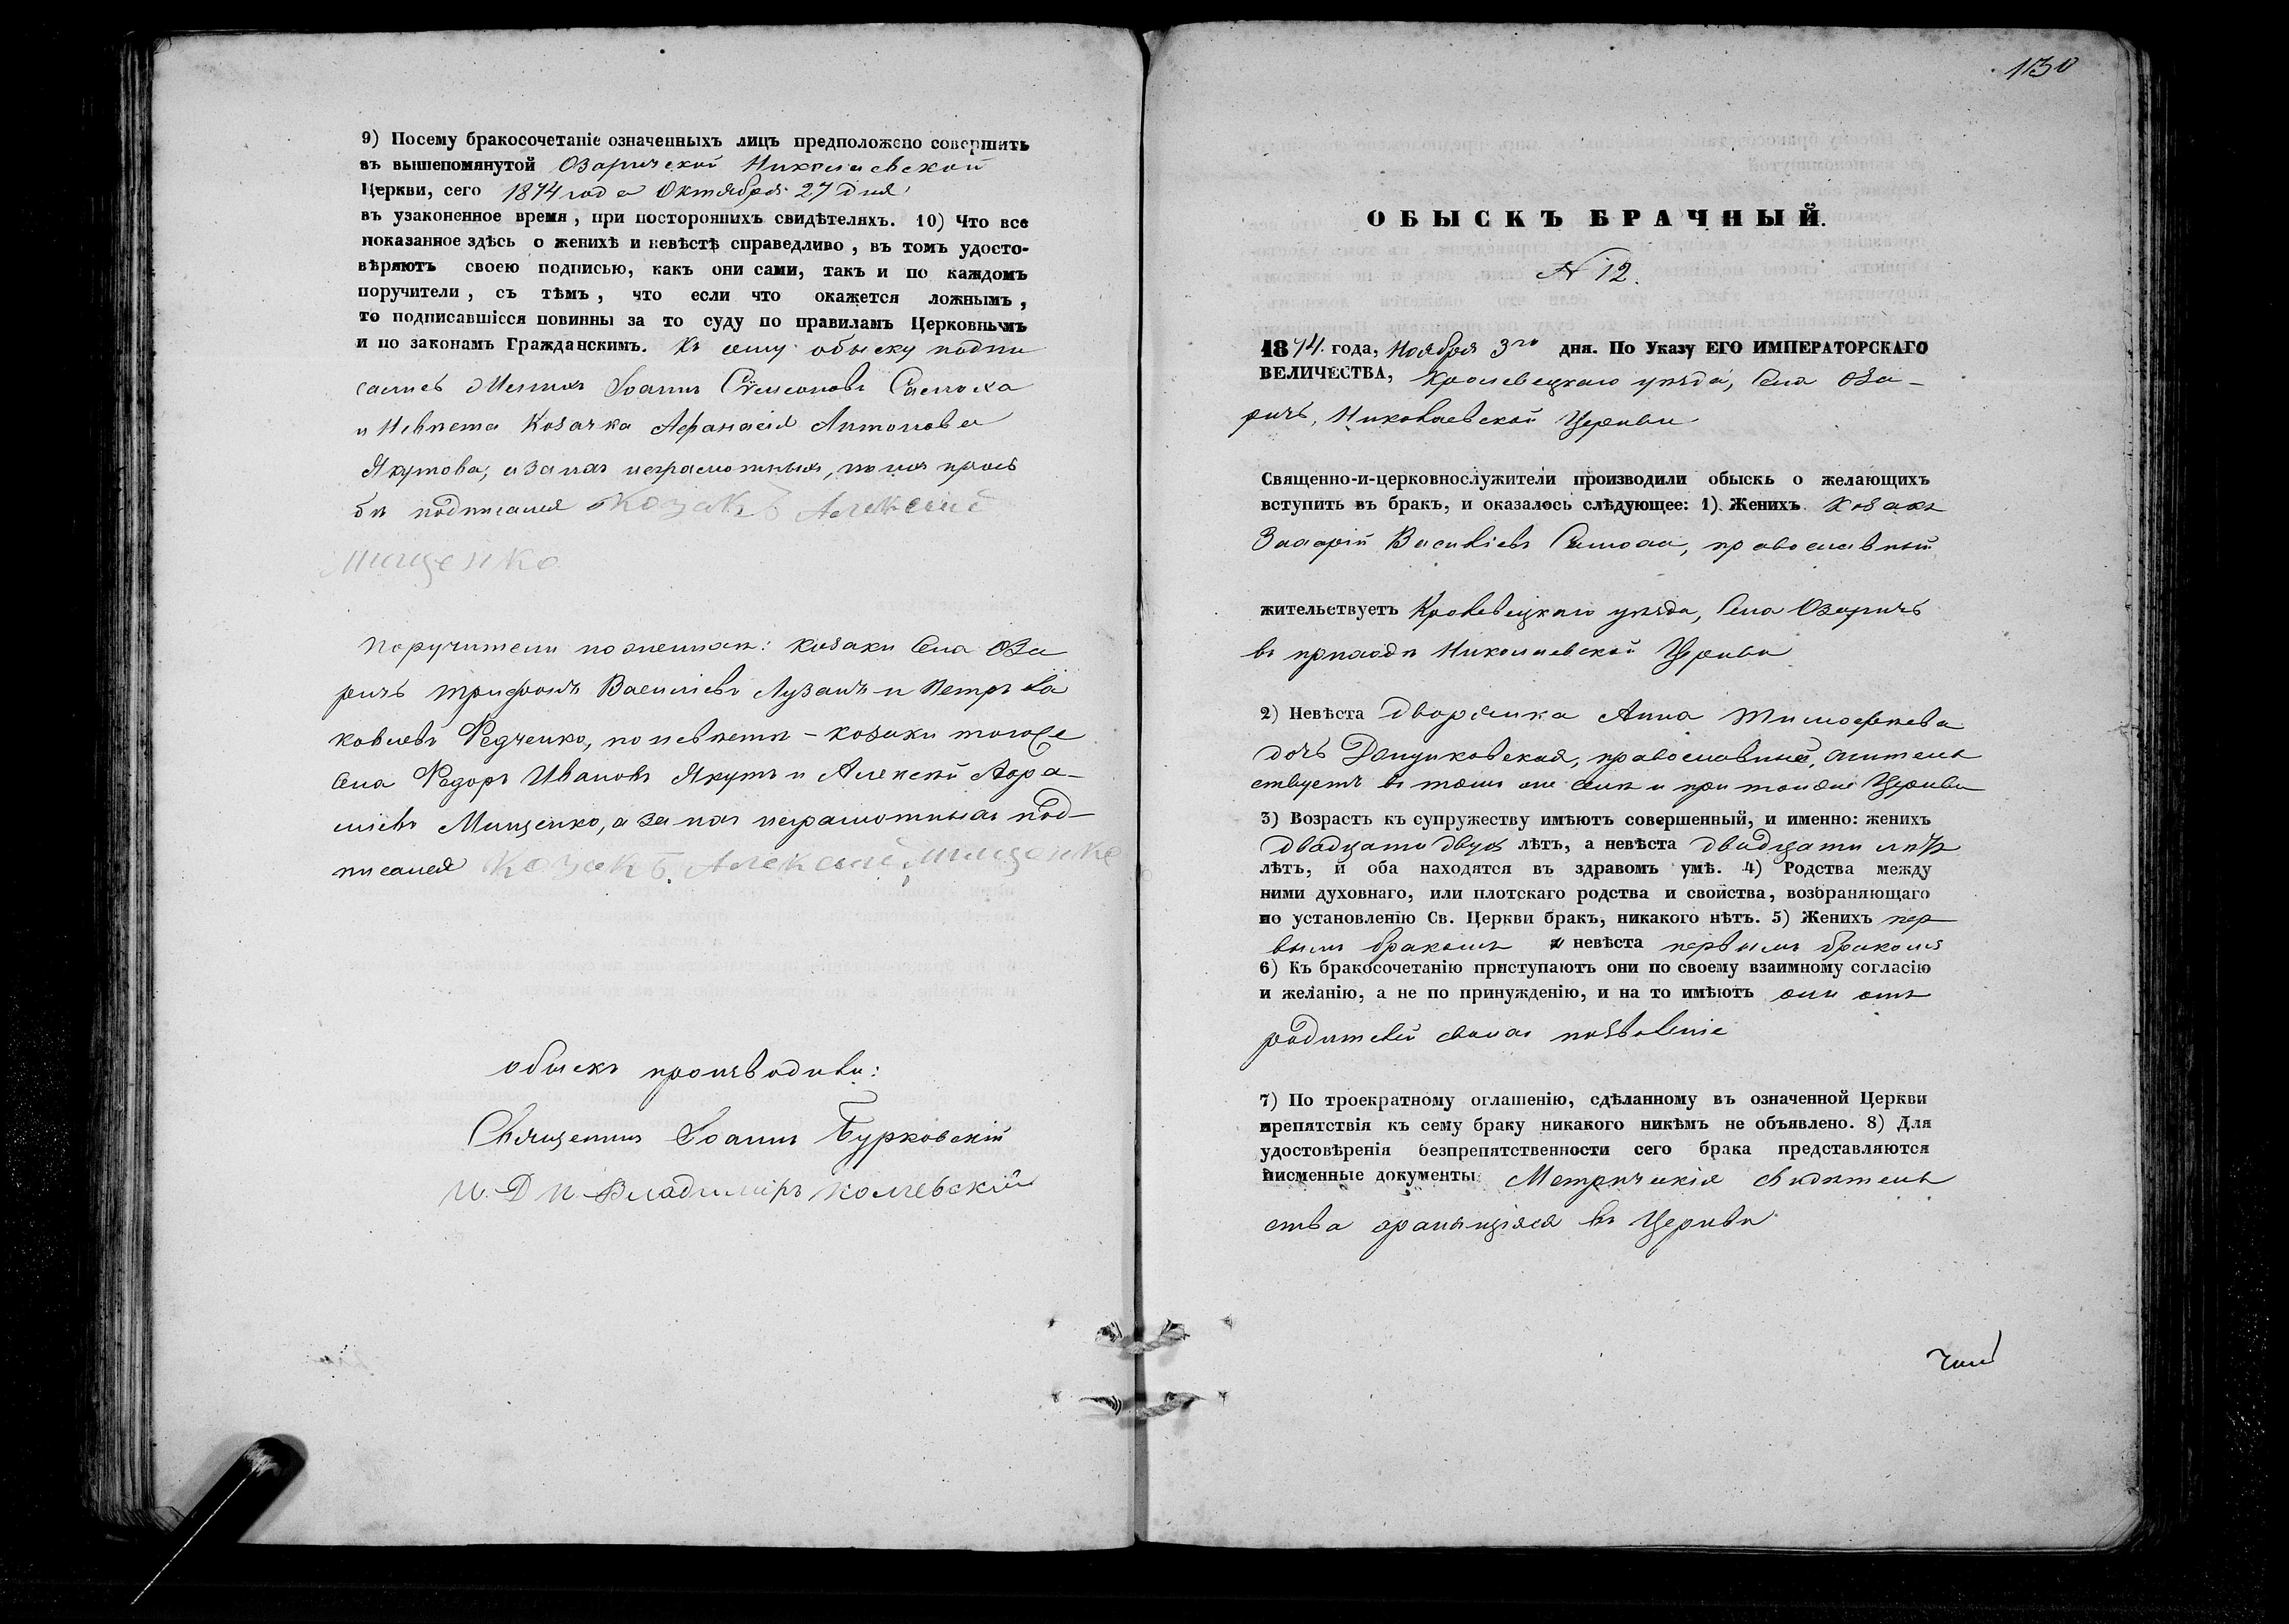 9) Посему бракосочетаніе означенныхъ лицъ предположено совершить
въ вышепомянутой Озаричской Николаевской
Церкви, сего 1874 года Октября 27 дня
въ узаконенное время, при постороннихъ свидѣтеляхъ. 10) Что все
показанное здѣсь о женихѣ и невѣстѣ справедливо, въ томъ удосто-
вѣряютъ своею подписью, какъ они сами, такъ и по каждомъ
поручители, съ тѣмъ, что если что окажется ложнымъ,
то подписавшіеся повинны за то суду по правиламъ Церковнымъ
и по законамъ Гражданскимъ. Къ сему обыску подпи
сались Женихъ Іоаннъ Симеоновъ
и Невѣста Козачка Афанасія Антонова
Якутова, а за нихъ неграмотныхъ, по ихъ прозь
бѣ подписался Козакъ Алексій
Мищенко
Поручители по женихѣ: козаки Села Оза
ричъ Трифонъ Васильевъ Лузанъ и Петръ Іа
ковлевъ Федченко, по невѣстѣ - козаки того же
Села Федоръ Ивановъ Якутъ и Алексѣй
Мищенко, а за нихъ неграмотныхъ под-
писался Козакъ Алексій Мищенко
обыскъ производили:
Священникъ Іоаннъ Бурковскій
И. Д. П. Владиміръ
130
ОБЫСКЪ БРАЧНЫЙ.
N 12.
1874 года, Ноября 3го дня. По Указу ЕГО ИМПЕРАТОРСКАГО
ВЕЛИЧЕСТВА, Кролевецкаго уѣзда, Села Оза-
ричъ, Николаевской Церкви
Священно-и-церковнослужители производили обыскъ о желающихъ
вступить въ бракъ, и оказалось слѣдующее: 1) Женихъ Козакъ
Захарій Василіевъ православный
жительствуетъ Кролевецкаго уѣзда, Села Озаричъ
въ приходѣ Николаевской Церкви
2) Невѣста дворянка Анна Тимофѣева
дочь православная, житель
ствуетъ въ томъ же селѣ и при той же Церкви
3) Возрастъ къ супружеству имѣютъ совершенный, и именно: женихъ
двадцати двухъ лѣтъ, а невѣста двадцати
лѣтъ, и оба находятся въ здравомъ умѣ. 4) Родства между
ними духовнаго, или плотскаго родства и свойства, возбраняющаго
по установленію Св. Церкви бракъ, никакого нѣтъ. 5) Женихъ пер
вымъ бракомъ и невѣста первымъ бракомъ
6) Къ бракосочетанію приступаютъ они по своему взаимному согласію
и желанію, а не по принужденію, и на то имѣютъ они отъ
родителей своихъ позволеніе
7) По троекратному оглашенію, сдѣланному въ означенной Церкви
препятствія къ сему браку никакого никѣмъ не объявлено. 8) Для
удостовѣренія безпрепятственности сего брака представляются
писменные документы Метрическія свидѣтель
ства хранящіяся въ Церкви